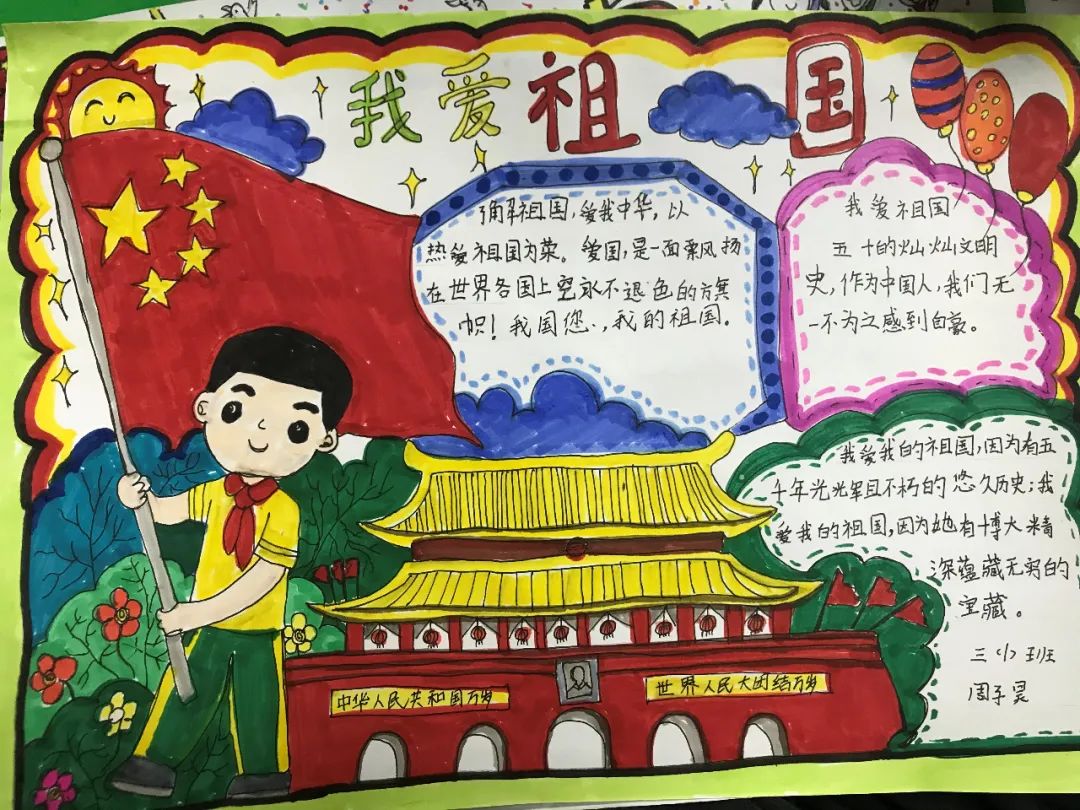 我爱祖国
了解祖国,爱我中华,以
热爱祖国为荣。爱国,是一面飘风扬
在世界各国上空永不退色的旗
帜!我国您..,我的祖国.
我爱祖国
五十的灿灿文明
史,作为中国人,我们无
一不为之感到自豪。
我爱我的祖国,因为有五
千年光光辉且不朽的悠久历史;我
爱我的祖国,因为她有博大精
深蕴藏无穷的
宝藏。
三(1)班
周子昊
中华人民共和国万岁
世界人民大的结万岁